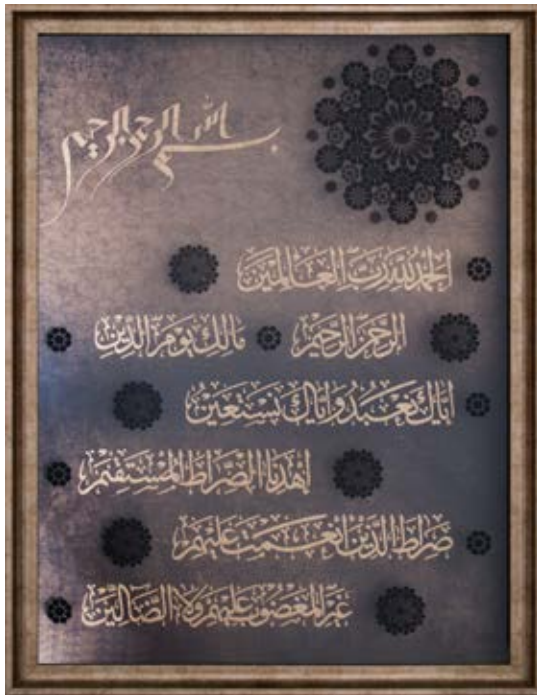 بسم الله الرحمن الرحيم
الحمد لله رب العالمين
الرحمن الرحيم مالك يوم الدين
اياك نعبد واياك نستعين
اهدنا الصراط المستقيم
صراط الذين انعمت عليهم
غير المغضوب عليهم ولا الضالين